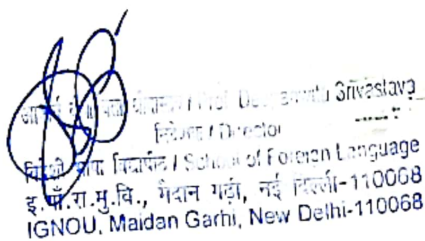 Srivastava
निदेशक / Director
विदेशी भाषा विद्यापीठ / School of Foreign Language
इ.गाँ.रा.मु.वि., मैदान गढ़ी, नई दिल्ली-110068
IGNOU, Maidan Garhi, New Delhi-110068